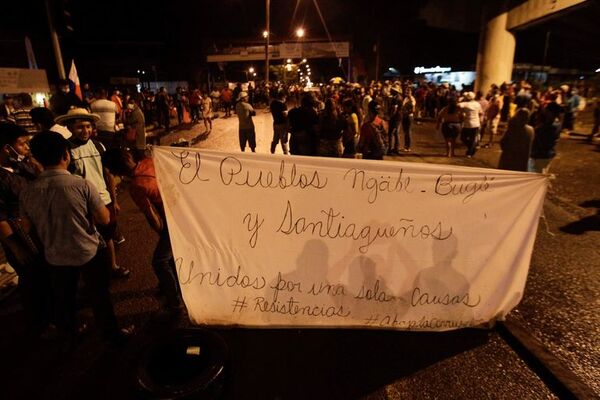 El Pueblos Ngäbe-Buglé
y Santiagueños
Unidos por una sola Causas
#Resistencias